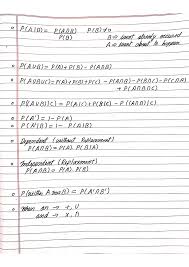 P(A|B) = P(A∩B) P(B)≠0
P(B) B = event already occured
A = event about to happen
P(A∪B) = P(A)+P(B) - P(A∩B)
P(A∪B∪C) = P(A)+P(B)+P(C) - P(A∩B) - P(B∩C) - P(C∩A)
+ P(A∩B∩C)
P(A') = 1 - P(A)
P(B') = 1 - P(B)
Dependent (without Replacement)
P(A∩B) = P(A).
Independent (Replacement)
P(A∩B) = P(A). P(B)
P(neither A nor B) = P(A'∩B')
When or → +, ∪
and → ×, ∩